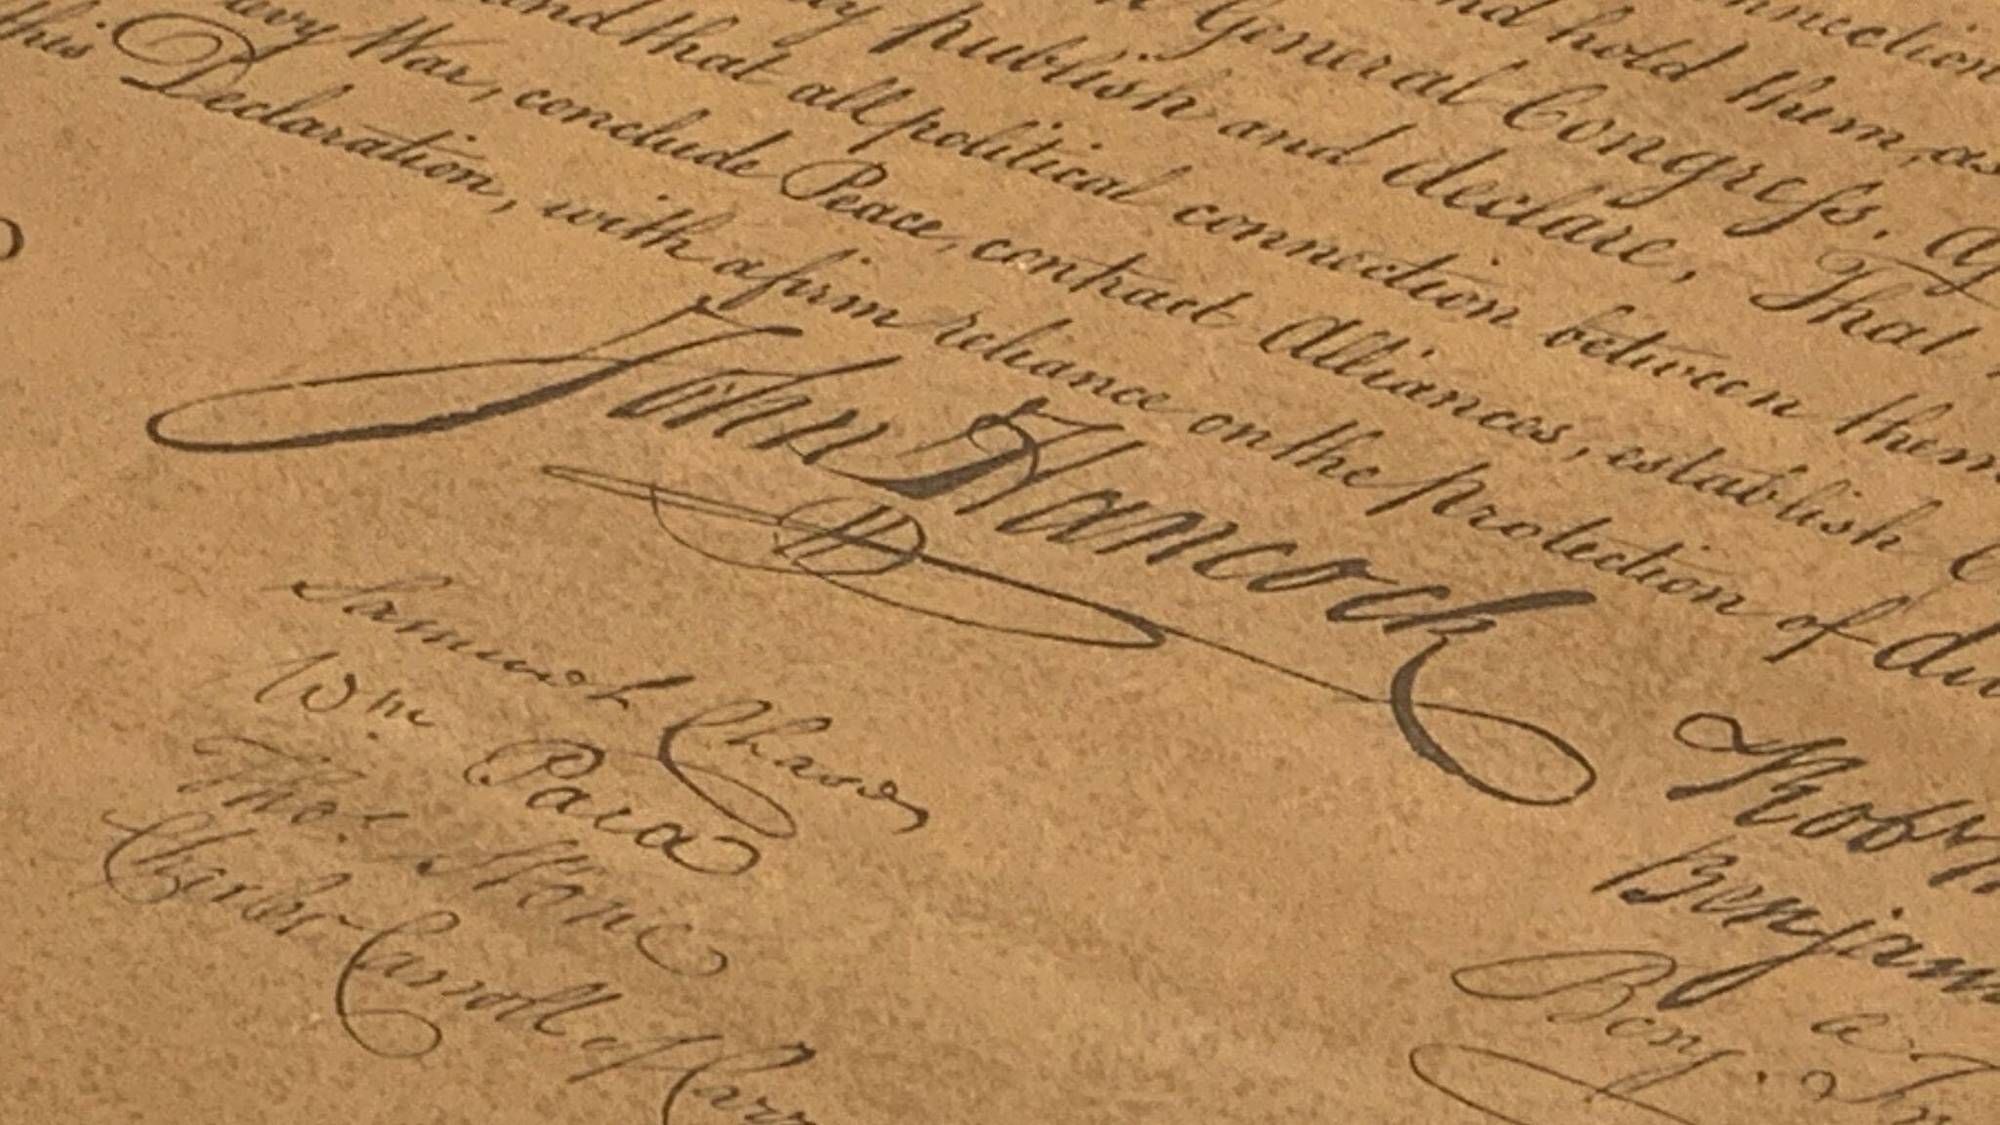 nnection
nd hold them, as
General Congreſs,
publish and declare, That
and that all political connection between them
War, conclude Peace, contract Alliances, establish
this Declaration, with a firm reliance on the protection of
John Hancock
Samuel Chase
Wm Paca
Thos. Stone
Charles Carroll of Carr
Benjam
Benj.